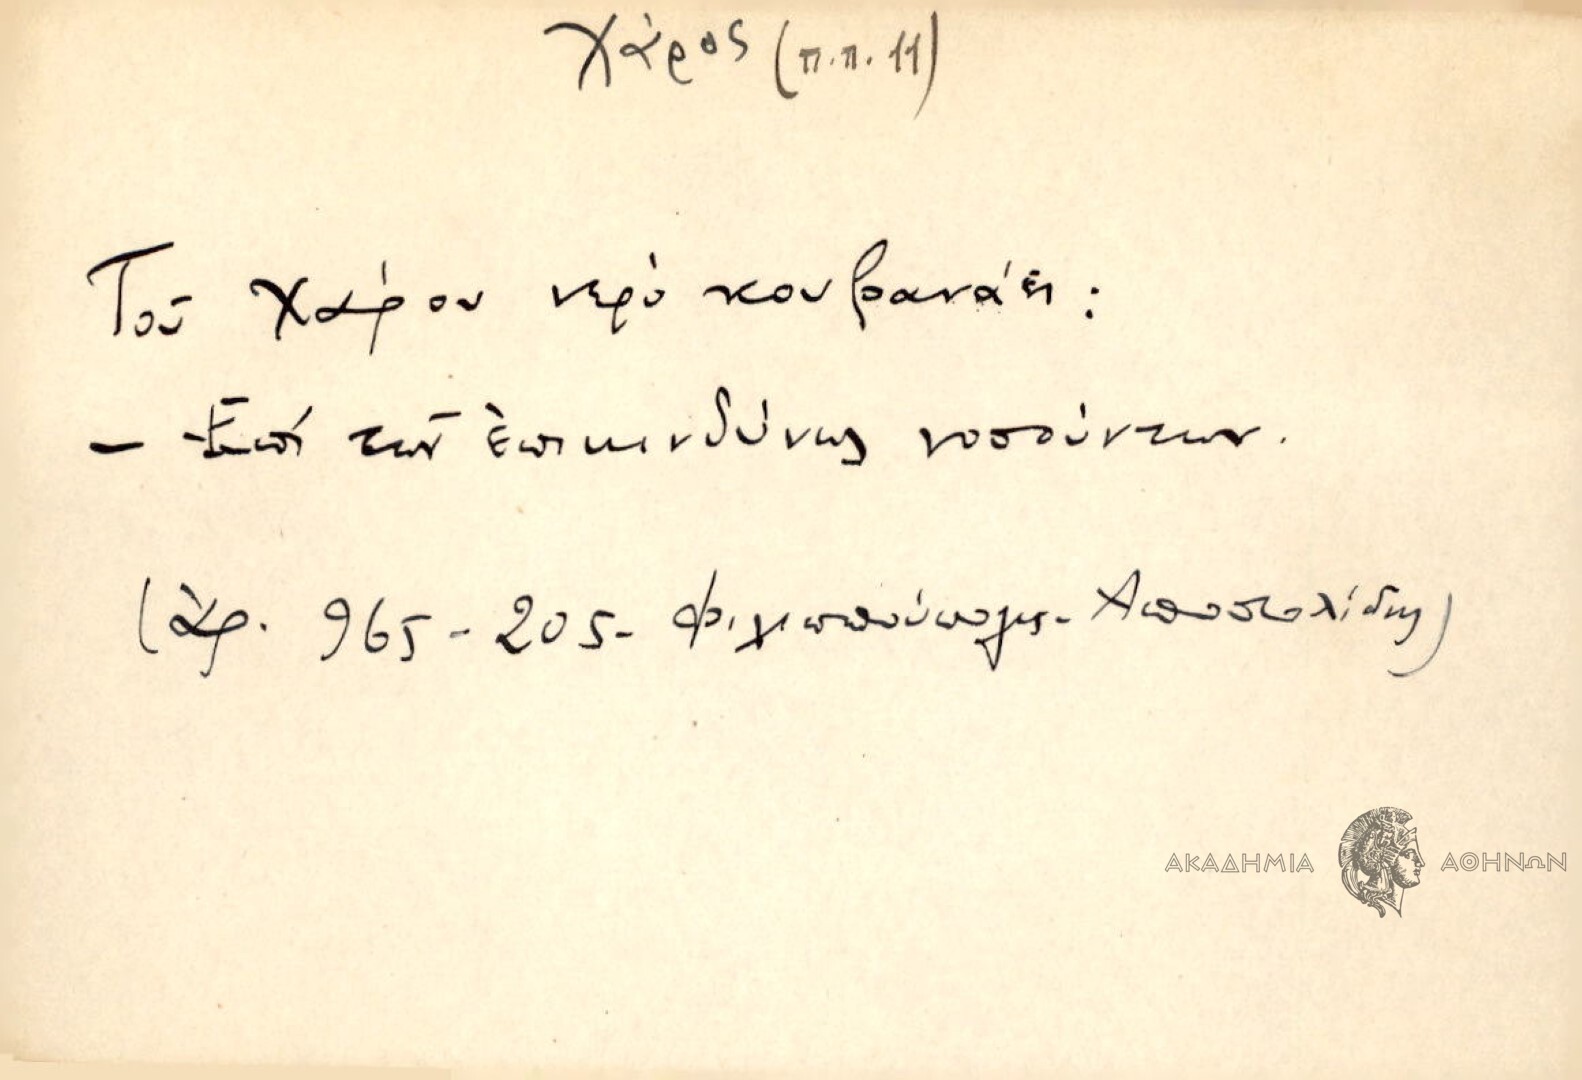 Χάρος (π.π. 11)
Τοῦ Χάρου νερό κουβανάει :
– Ἐπί τῶν ἐπικινδύνως νοσούντων.
(ἀρ. 965 - 205 - Φιλιππούπολις - Ἀποστολίδης)
ΑΚΑΔΗΜΙΑ ΑΘΗΝΩΝ